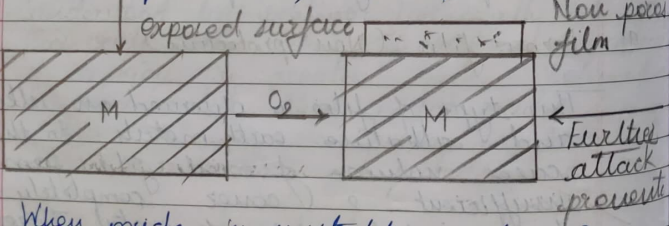 exposed surface
Non porous
film
M
O2
M
Further
attack
prevent
When oxide is